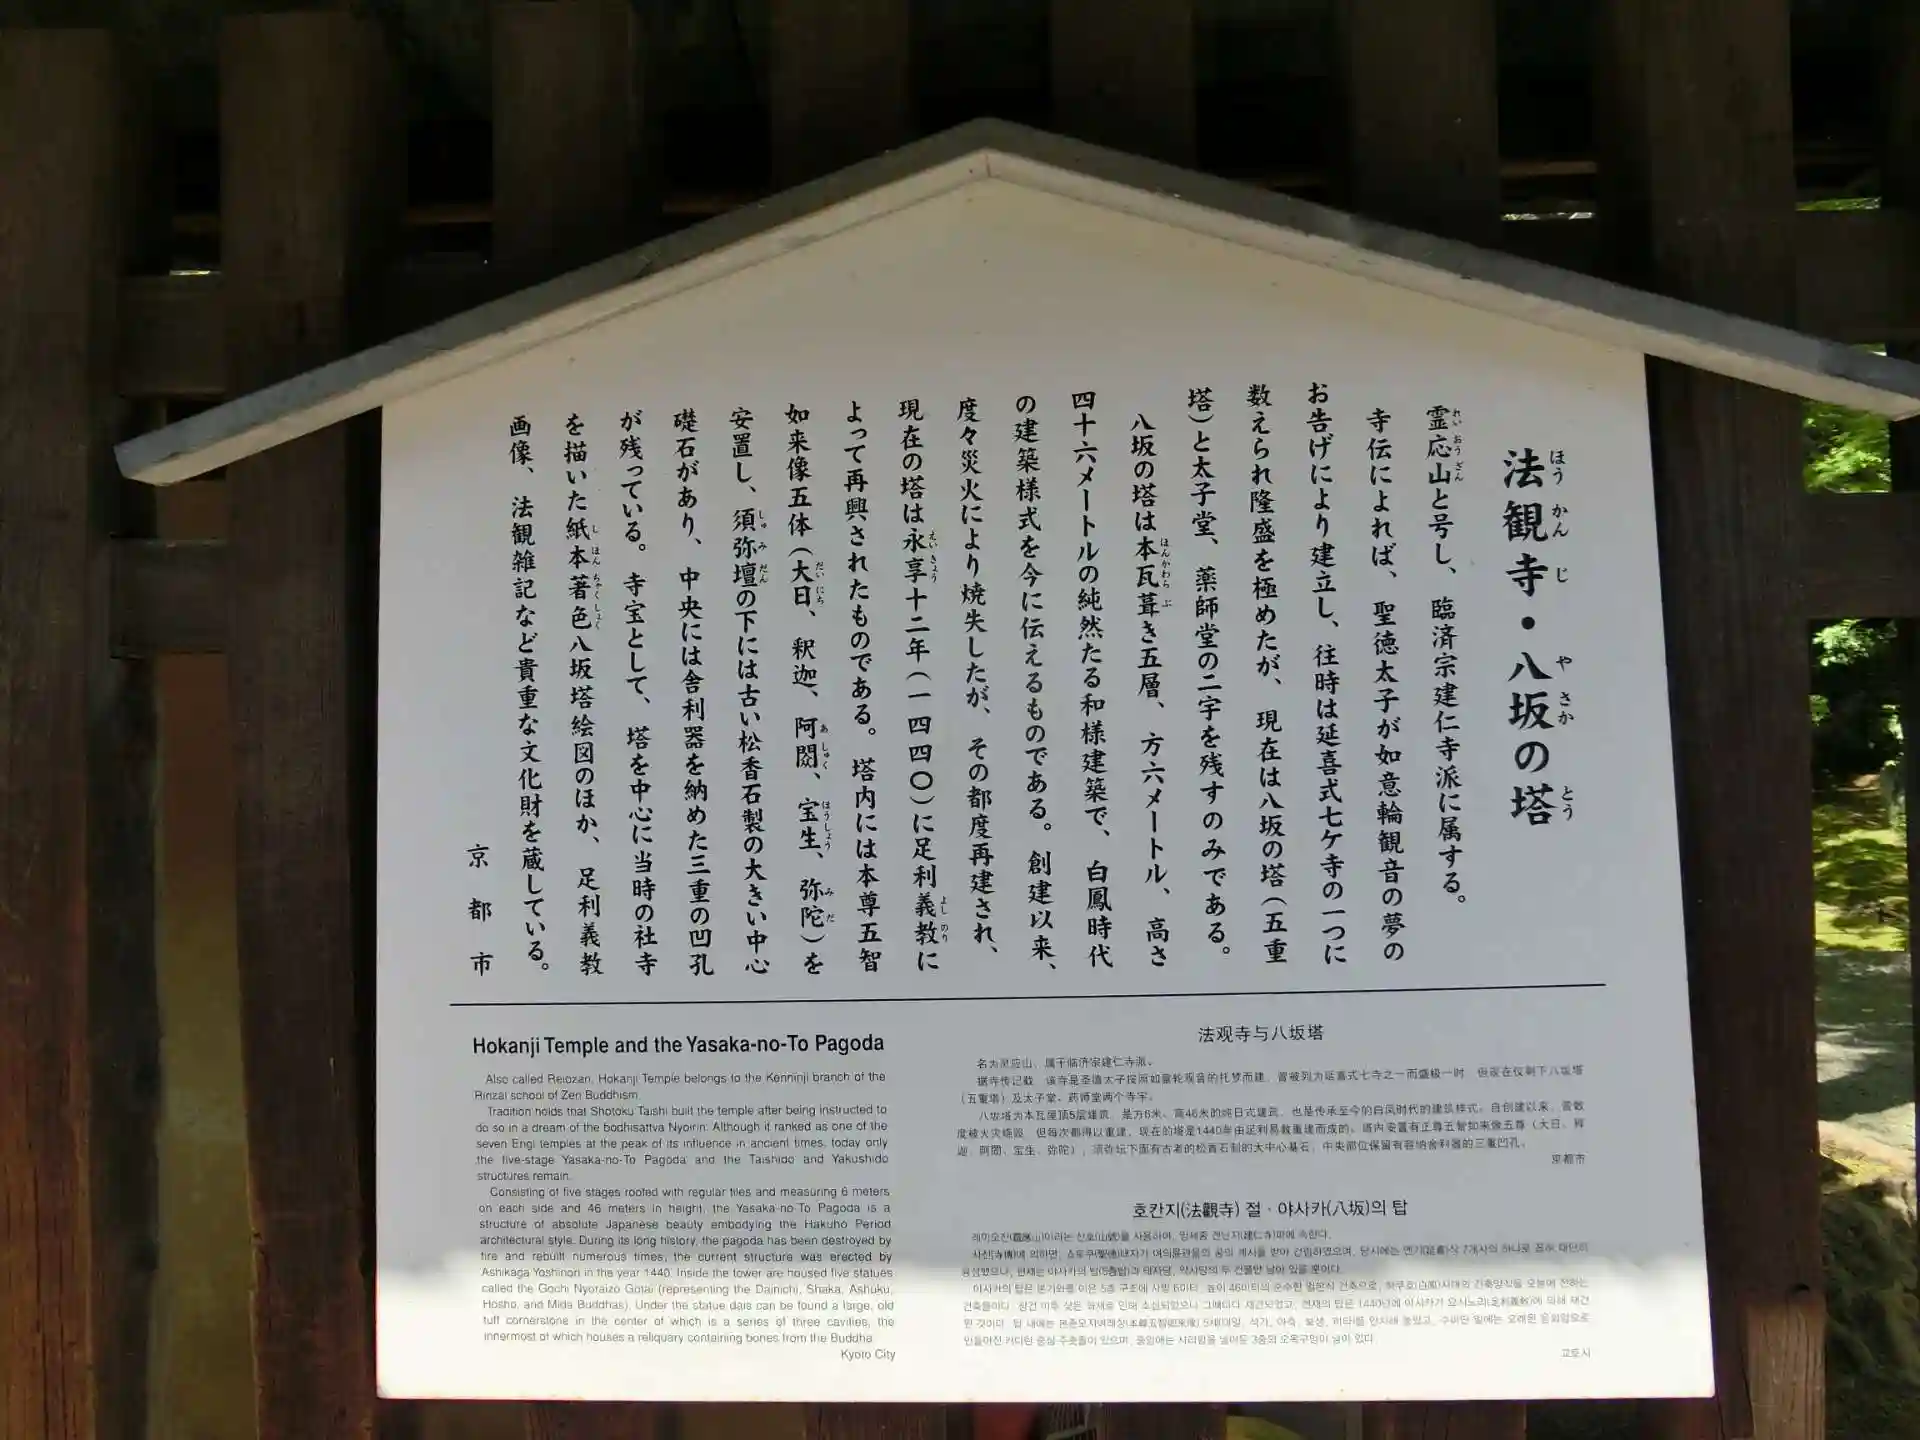 法観寺・八坂の塔
霊応山と号し、臨済宗建仁寺派に属する。
寺伝によれば、聖徳太子が如意輪観音の夢の
お告げにより建立し、往時は延喜式七ケ寺の一つに
数えられ隆盛を極めたが、現在は八坂の塔(五重
塔)と太子堂、薬師堂の二宇を残すのみである。
八坂の塔は本瓦葺き五層、方六メートル、高さ
四十六メートルの純然たる和様建築で、白鳳時代
の建築様式を今に伝えるものである。創建以来、
度々災火により焼失したが、その都度再建され、
現在の塔は永享十二年(一四四〇)に足利義教に
よって再興されたものである。塔内には本尊五智
如来像五体(大日、釈迦、阿閦、宝生、弥陀)を
安置し、須弥壇の下には古い松香石製の大きい中心
礎石があり、中央には舎利器を納めた三重の凹孔
が残っている。寺宝として、塔を中心に当時の社寺
を描いた紙本著色八坂塔絵図のほか、足利義教
画像、法観雑記など貴重な文化財を蔵している。
京都市
Hokanji Temple and the Yasaka-no-To Pagoda
Also called Reiozan, Hokanji Temple belongs to the Kenninji branch of the
Rinzai school of Zen Buddhism.
Tradition holds that Shotoku Taishi built the temple after being instructed to
do so in a dream of the bodhisattva Nyoirin. Although it ranked as one of the
seven Engi temples at the peak of its influence in ancient times, today only
the five-stage Yasaka-no-To Pagoda and the Taishido and Yakushido
structures remain.
Consisting of five stages roofed with regular tiles and measuring 6 meters
on each side and 46 meters in height, the Yasaka-no-To Pagoda is a
structure of absolute Japanese beauty embodying the Hakuho Period
architectural style. During its long history, the pagoda has been destroyed by
fire and rebuilt numerous times; the current structure was erected by
Ashikaga Yoshinori in the year 1440. Inside the tower are housed five statues
called the Gochi Nyoraizo Gotai (representing the Dainichi, Shaka, Ashuku,
Hosho, and Mida Buddhas). Under the statue dais can be found a large, old
tuff cornerstone in the center of which is a series of three cavities, the
innermost of which houses a reliquary containing bones from the Buddha.
Kyoto City
法观寺与八坂塔
名为灵应山，属于临济宗建仁寺派。
据寺传记载，该寺是圣德太子按照如意轮观音的托梦而建，曾被列为延喜式七寺之一而盛极一时，但现在仅剩下八坂塔
（五重塔）及太子堂、药师堂两个寺宇。
八坂塔为本瓦屋顶5层建筑，是方6米、高46米的纯日式建筑，也是传承至今的白凤时代的建筑样式。自创建以来，曾数
度被火灾烧毁，但每次都得以重建，现在的塔是1440年由足利义教重建而成的。塔内安置有正尊五智如来像五尊（大日、释
迦、阿閦、宝生、弥陀），须弥坛下面有古老的松香石制的大中心基石，中央部位保留有容纳舍利器的三重凹孔。
京都市
호칸지(法觀寺) 절・야사카(八坂)의 탑
교토시